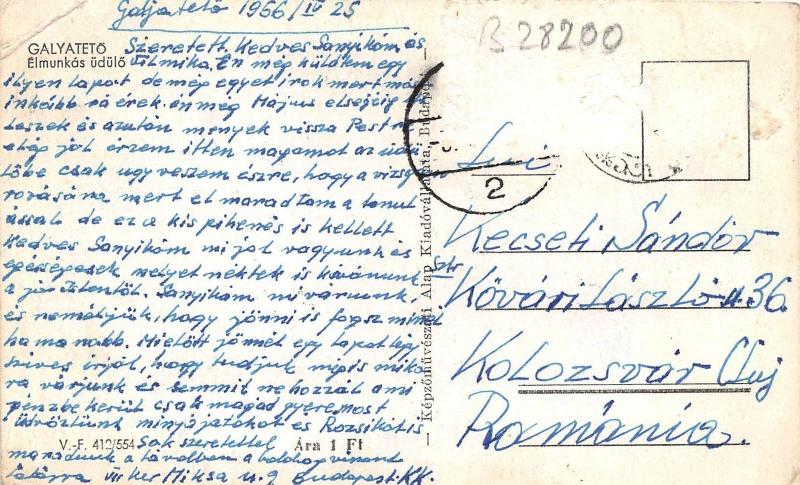 Galyatető 1956/IV 25
B 28200
GALYATETŐ
Élmunkás üdülő
Szeretett, Kedves Sanyikóm és
Vilmika. Én még küldök egy
ilyen lapot de még egyet irok mert más
inkább rá érek. én még Május elsejéig
leszek és azután megyek vissza Pestre
elég jól érzem itten magamat az üdü
lőbe csak ugy veszem észre, hogy a vizsga
rovására mert el maradtam a tanul
ással de ez a kis pihenés is kellett
Kedves Sanyikóm mi jól vagyunk és
egésségesek melyet néktek is kivánunk
a jó Istentől. Sanyikóm mi várunk,
és reméljük, hogy jönni is fogsz minél
hamarabb. Mielőtt jönnél egy lapot légy
szives irjál, hogy tudjuk mégis miko
ra várjunk és semmit ne hozzál ami
pénzbe kerül csak magad gyere most
üdvözlünk mindnyájatokat és Rozsikát is
Sok szeretettel
maradunk a távolban a
VII ker Miksa u. 9 Budapest. KK.
V.-F. 412/554
Ára 1 Ft
— Képzőművészeti Alap Kiadóvállalata, Budapest —
2
Kecseti Sándor
Str
Kővári László u. 36.
Kolozsvár Cluj
Románia.